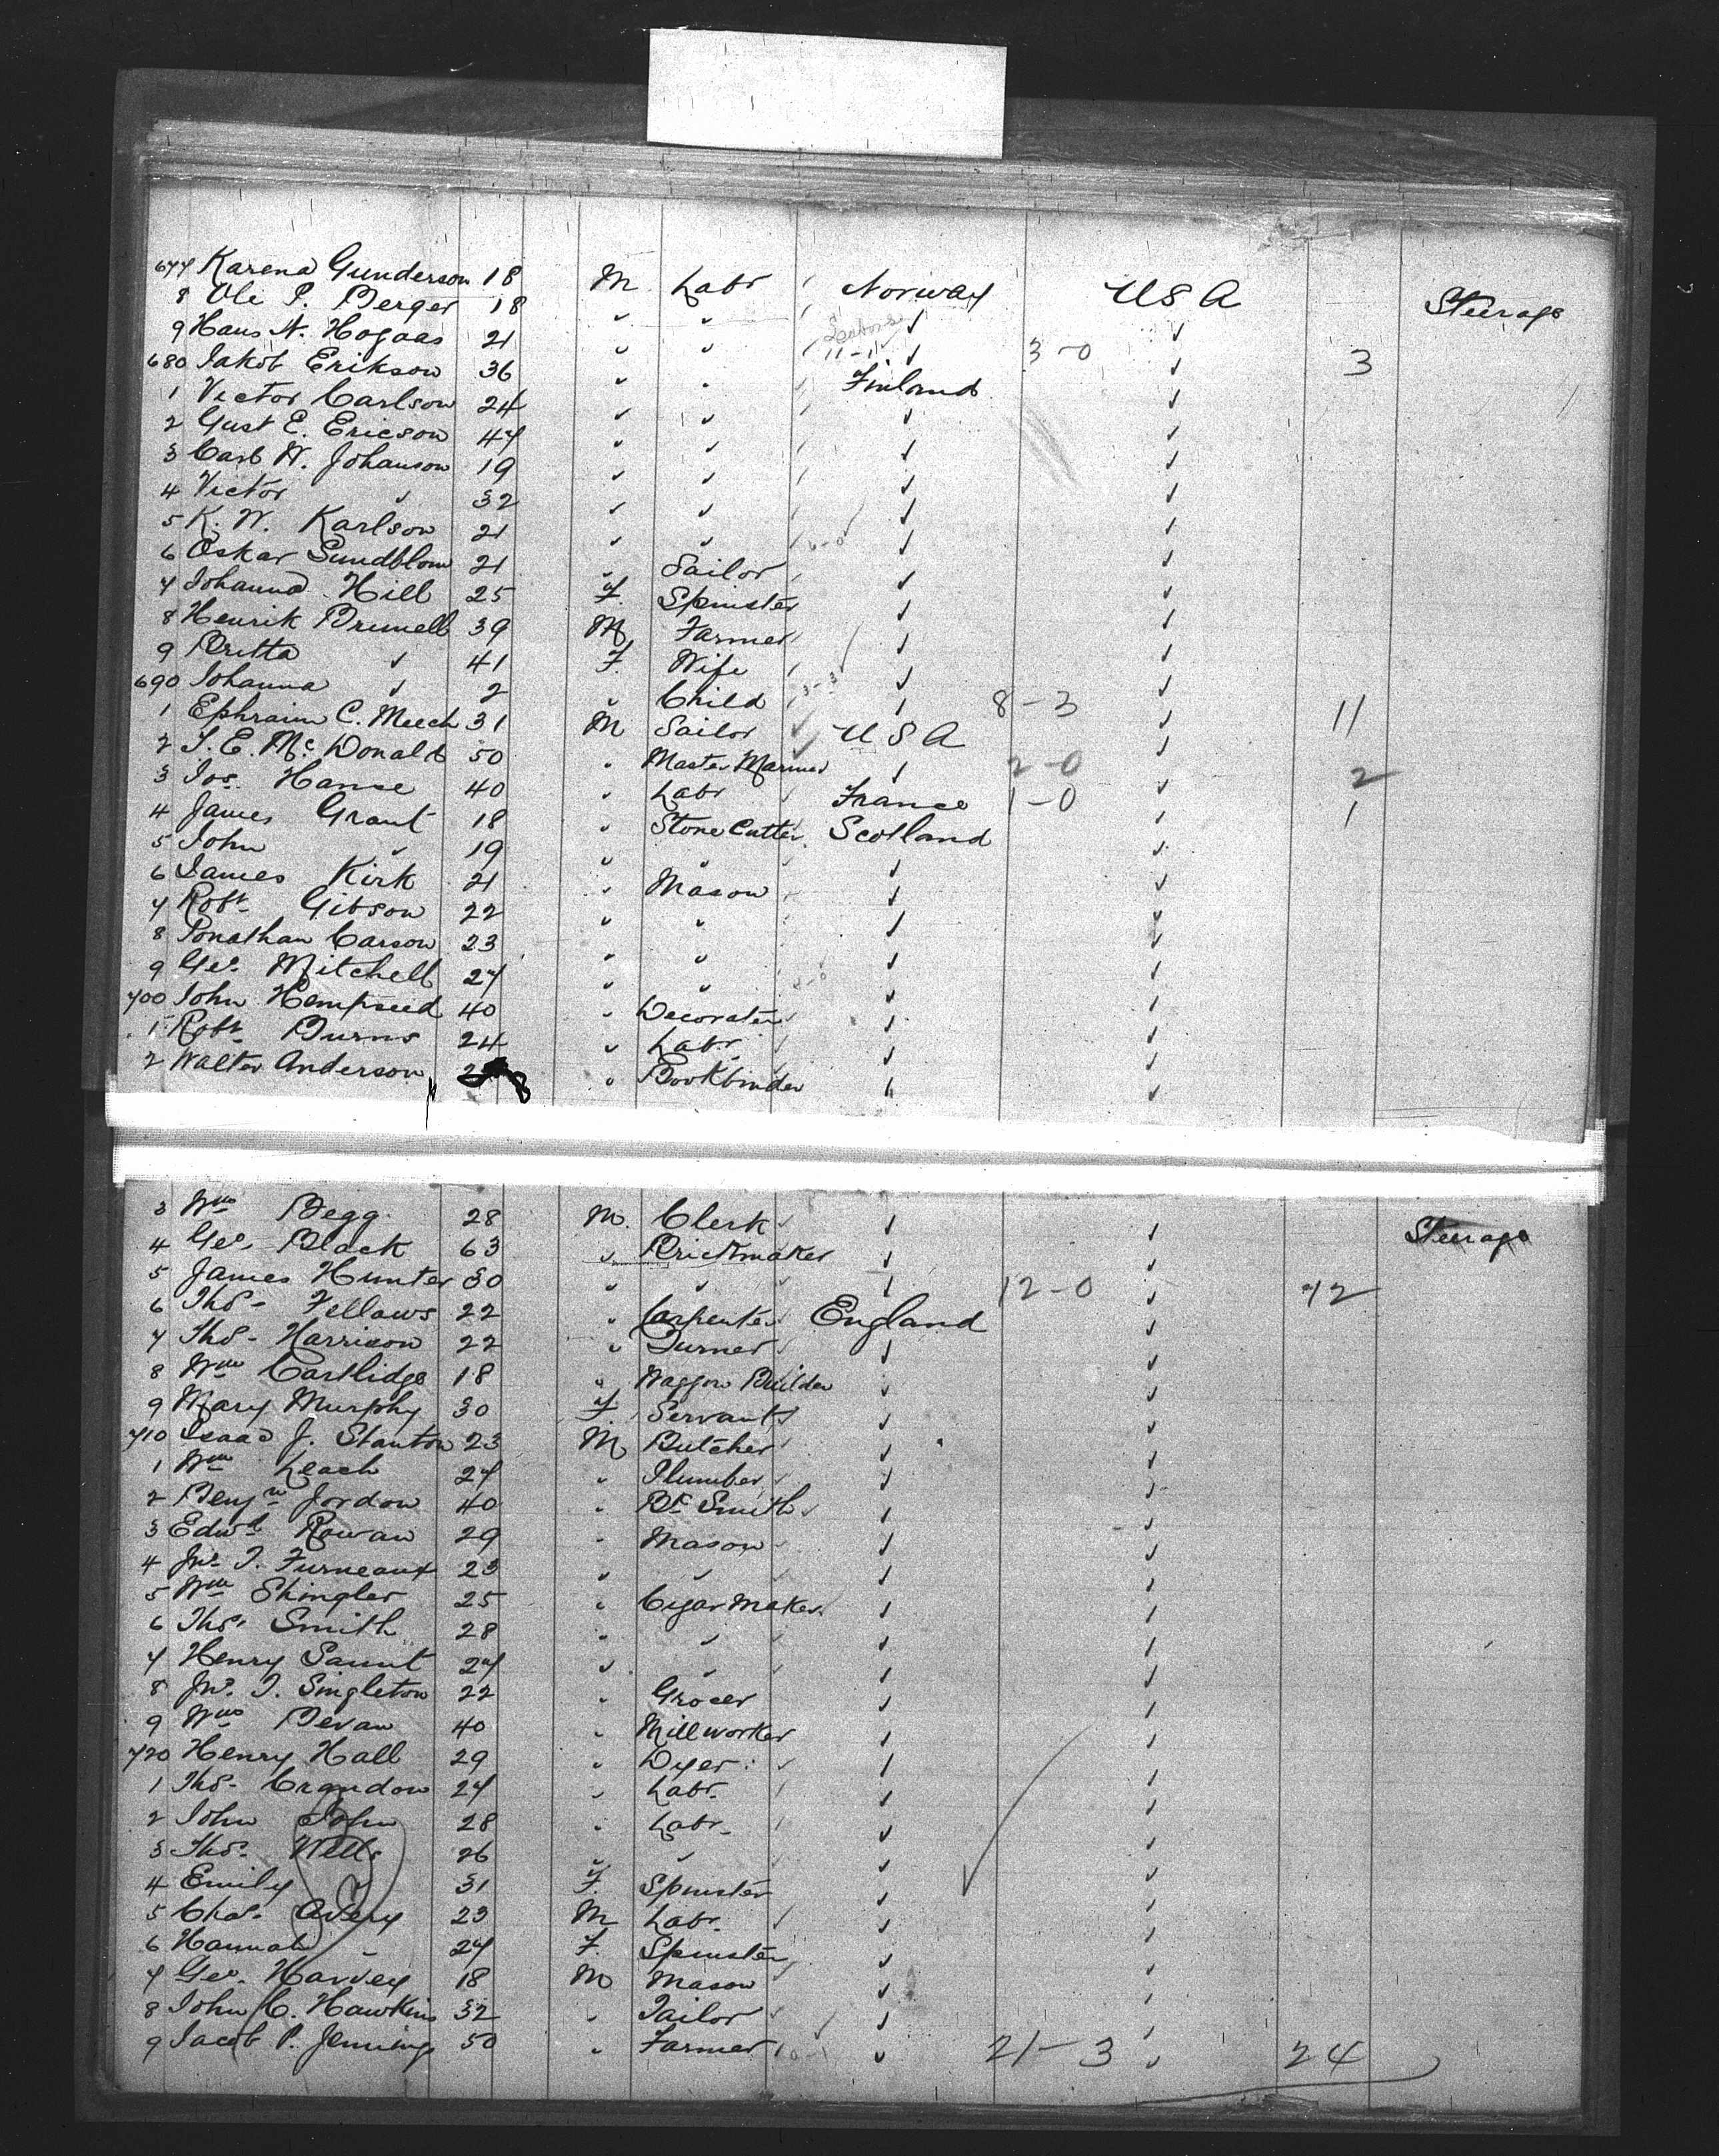 677 Karena Gunderson 18 M Labr Norway USA Steerage
8 Ole P. Berger 18 " " ✓ ✓
9 Hans A. Hogaas 21 " " 11-11 ✓ 3-0 ✓ 3
680 Jakob Erikson 36 " " Finland ✓
1 Victor Carlson 24 " " ✓ ✓
2 Gust E. Ericson 47 " " ✓ ✓
3 Carl W. Johanson 19 " " ✓ ✓
4 Victor " 32 " " ✓ ✓
5 K. W. Karlson 21 " " ✓ ✓
6 Oskar Sundblom 21 " Sailor ✓ ✓
7 Johanna Hill 25 F. Spinster ✓ ✓
8 Henrik Brunell 39 M Farmer ✓ ✓
9 Britta " 41 F. Wife ✓ ✓
690 Johanna " 2 " Child 3-3 ✓ 8-3 ✓ 11
1 Ephraim C. Meech 31 M Sailor USA ✓
2 J. E. McDonald 50 " Master Mariner ✓ 2-0 ✓ 2
3 Jos. Hanse 40 " Labr France 1-0 ✓ 1
4 James Grant 18 " Stone Cutter Scotland ✓
5 John " 19 " " ✓ ✓
6 James Kirk 21 " Mason ✓ ✓
7 Robt Gibson 22 " " ✓ ✓
8 Jonathan Carson 23 " " ✓ ✓
9 Geo. Mitchell 27 " " ✓ ✓
700 John Hempseed 40 " Decorater ✓ ✓
1 Robt Burns 24 " Labr ✓ ✓
2 Walter Anderson 8 " Bookbinder " ✓
3 Wm Begg 28 M. Clerk ✓ ✓ Steerage
4 Geo. Black 63 " Brickmaker ✓ ✓
5 James Hunter 30 " " ✓ 12-0 ✓ 12
6 Thos- Fellows 22 " Carpenter England ✓
7 Thos- Harrison 22 " Turner ✓ ✓
8 Wm Cartlidge 18 " Waggon Builder ✓ ✓
9 Mary Murphy 30 F. Servant ✓ ✓
710 Isaac J. Stanton 23 M Butcher ✓ ✓
1 Wm Leach 27 " Plumber ✓ ✓
2 Benjn Jordon 40 " Bk Smith ✓ ✓
3 Edwd Rowan 29 " Mason ✓ ✓
4 Jno. T. Furneaux 23 " " ✓ ✓
5 Wm Shingler 25 " Cigar Maker ✓ ✓
6 Thos. Smith 28 " " ✓ ✓
7 Henry Saunt 27 " " ✓ ✓
8 Jno. T. Singleton 22 " Grocer ✓ ✓
9 Wm Bevan 40 " Millworker ✓ ✓
720 Henry Hall 29 " Dyer ✓ ✓
1 Thos- Crandon 27 " Labr. ✓ ✓
2 John John 28 " Labr. ✓ ✓
3 Thos- Wells 26 " " ✓ ✓
4 Emily " 31 F. Spinster ✓ ✓
5 Chas- Avery 23 M Labr. ✓ ✓
6 Hannah " 27 F. Spinster ✓ ✓
7 Geo. Harvey 18 M Mason ✓ ✓
8 John C. Hawkins 32 " Tailor ✓ ✓
9 Jacob P. Jennings 50 " Farmer ✓ 21-3 ✓ 24